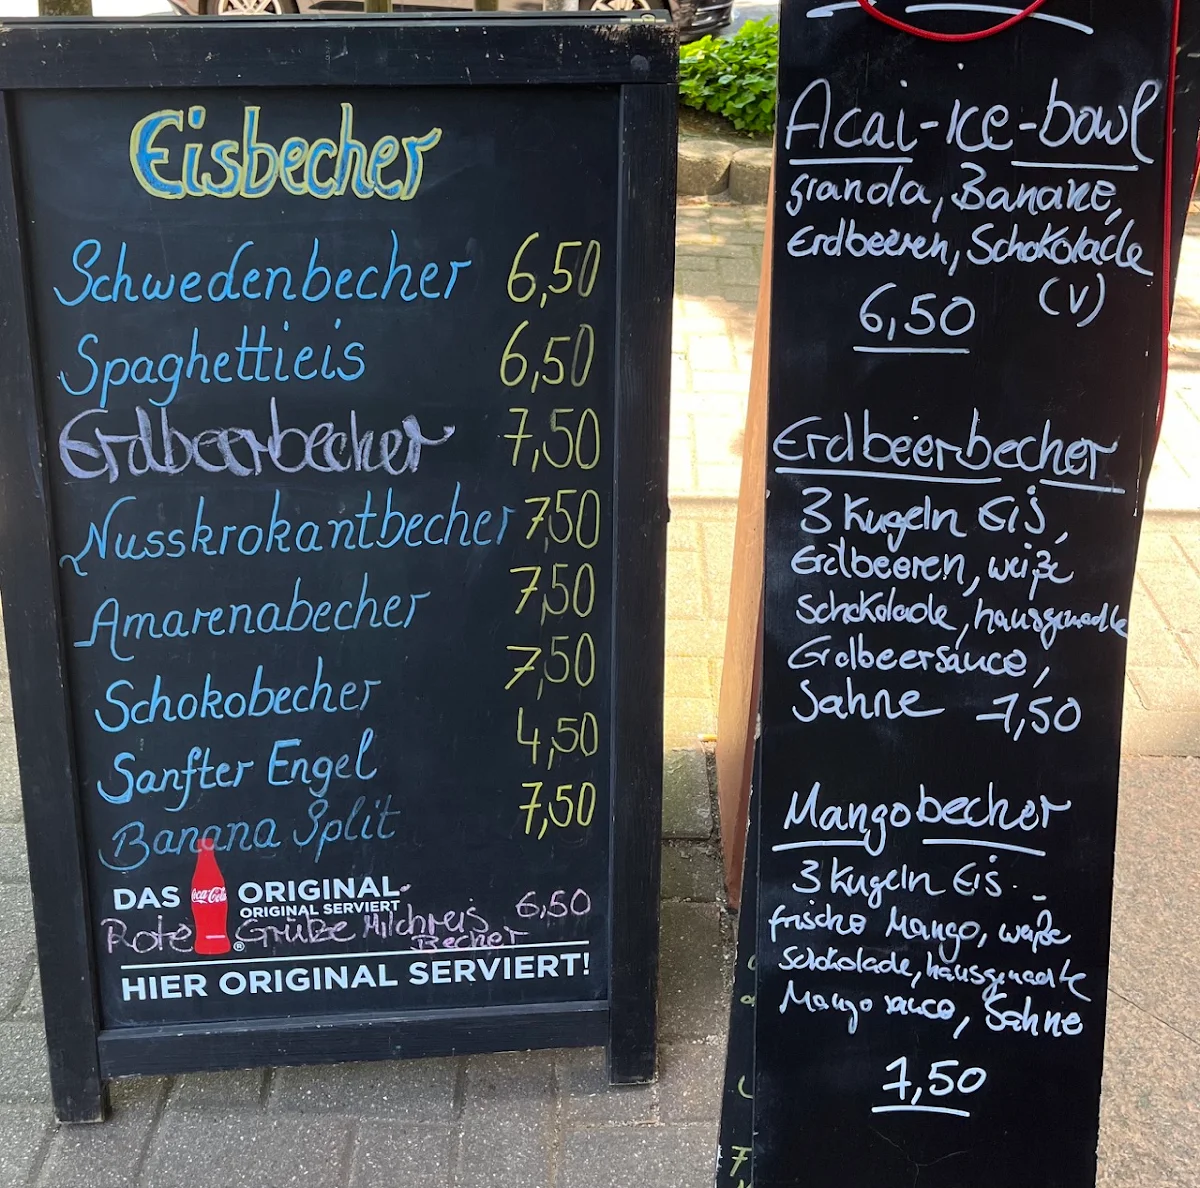 Eisbecher
Schwedenbecher 6,50
Spaghettieis 6,50
Erdbeerbecher 7,50
Nusskrokantbecher 7,50
Amarenabecher 7,50
Schokobecher 7,50
Sanfter Engel 4,50
Banana Split 7,50
DAS Coca-Cola ORIGINAL
ORIGINAL SERVIERT
Rote-Grütze Milchreis 6,50
Becher
HIER ORIGINAL SERVIERT!
Acai-ice-bowl
Granola, Banane,
Erdbeeren, Schokolade
(V)
6,50
Erdbeerbecher
3 Kugeln Eis,
Erdbeeren, weiße
Schokolade, hausgemachte
Erdbeersauce,
Sahne 7,50
Mangobecher
3 Kugeln Eis
frische Mango, weiße
Schokolade, hausgemachte
Mangosauce, Sahne
7,50